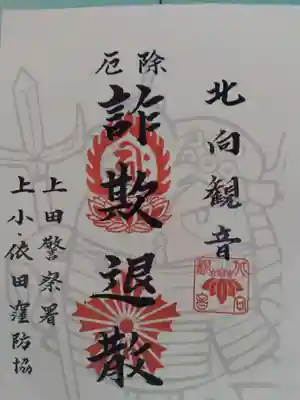 北向観音
厄除
詐欺退散
上田警察署
上小・依田窪防協